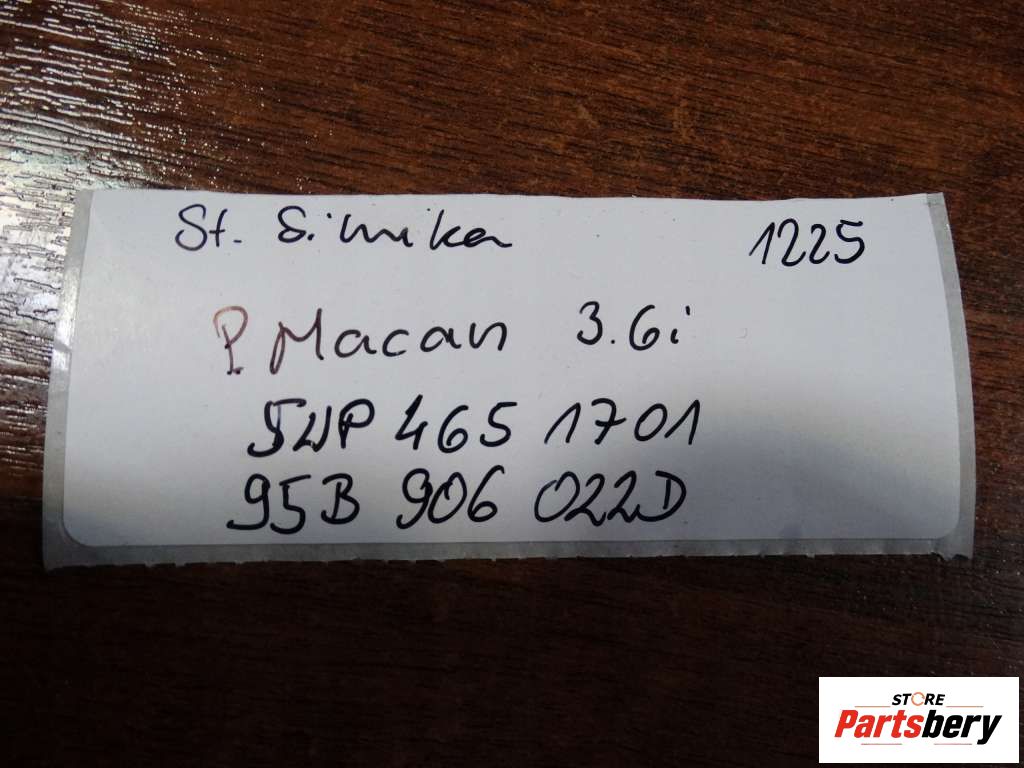 St. Silnika 1225
P. Macan 3.6i
5WP 465 1701
95B 906 022D
STORE
Partsbery